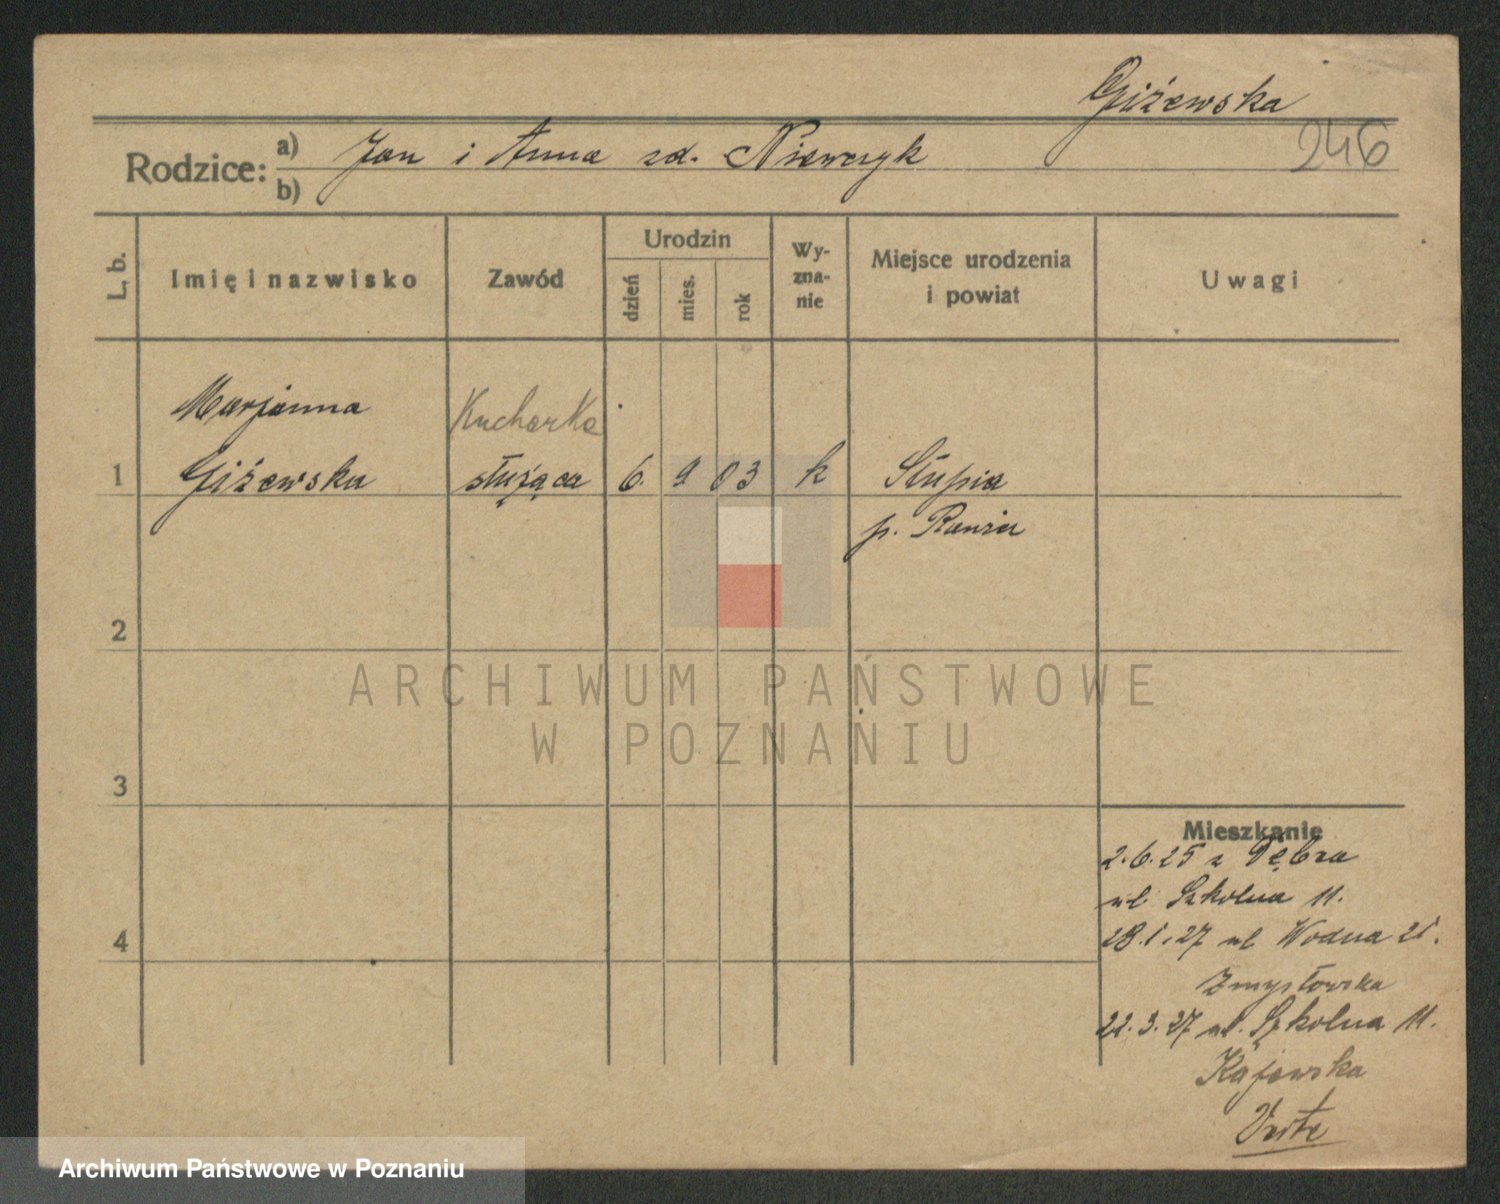 Giżewska
246
Rodzice: a) Jan i Anna zd. Niewczyk
b)
L. b.
Imię i nazwisko
Zawód
Urodzin
dzień
mies.
rok
Wy-
zna-
nie
Miejsce urodzenia
i powiat
Uwagi
Marjanna
Kucharka
1 Giżewska służąca 6. 9 03 k Słupia
p. Rawicz
2
ARCHIWUM PAŃSTWOWE
W POZNANIU
3
Mieszkanie
2.6.25 z Dębca
ul. Szkolna 11.
4
28.1.27 ul Wodna 21.
Zmysłowska
22.3.27 ul. Szkolna 11.
Kajewska
Archiwum Państwowe w Poznaniu